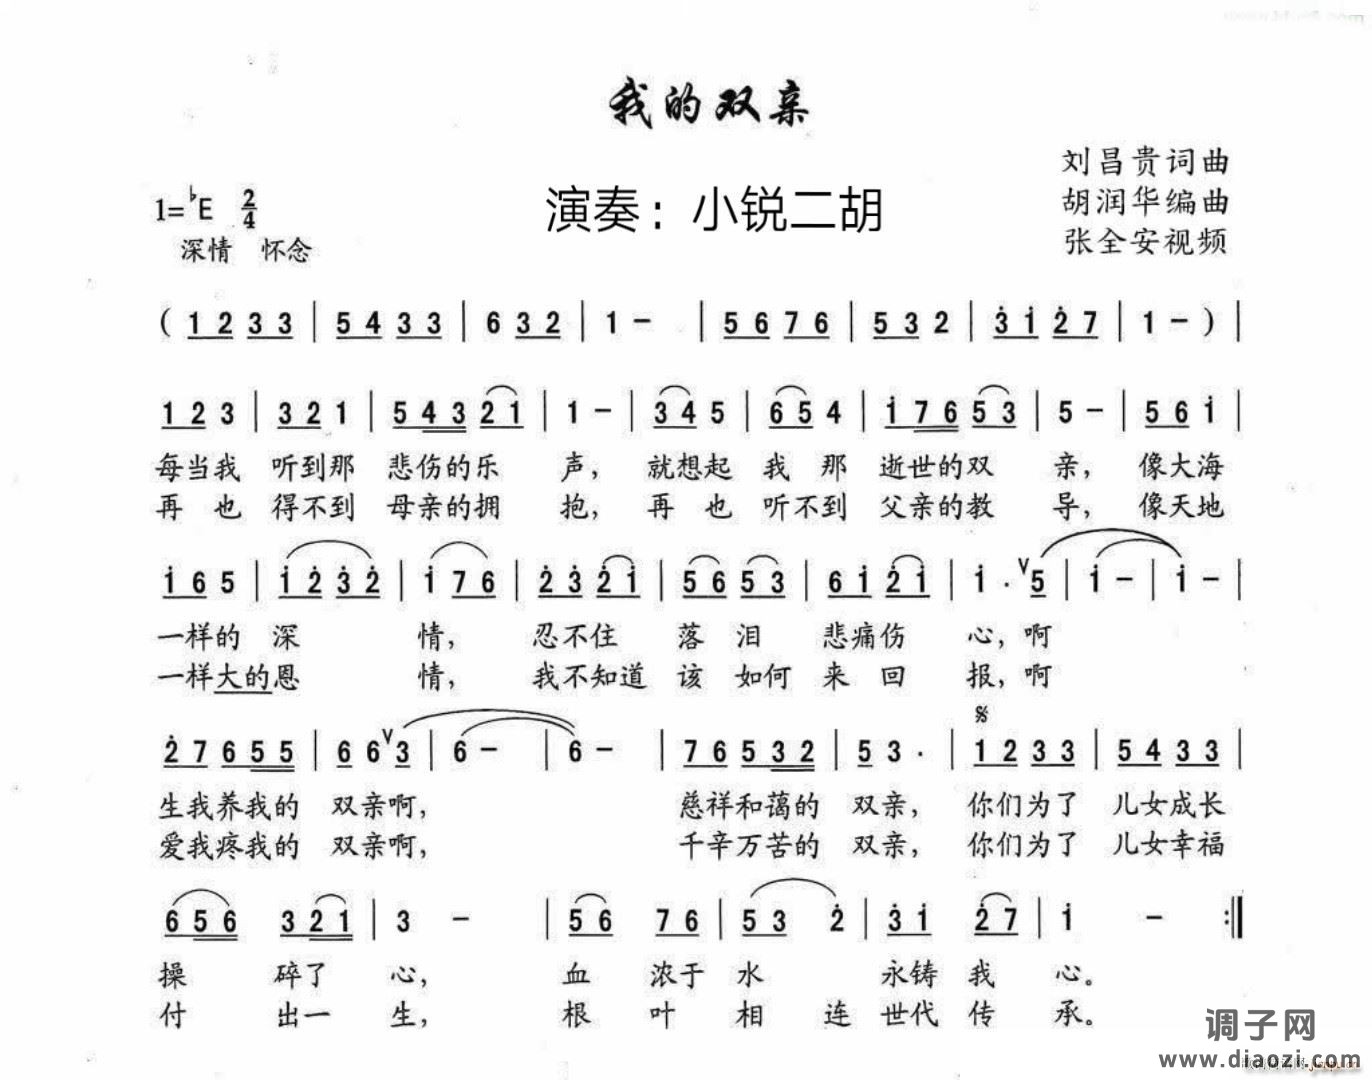 我的双亲
1=♭E 2/4
演奏：小锐二胡
刘昌贵词曲
胡润华编曲
张全安视频
深情 怀念
( 1 2 3 3 | 5 4 3 3 | 6 3 2 | 1 - | 5 6 7 6 | 5 3 2 | 3̇ 1̇ 2̇ 7 | 1 - ) |
1 2 3 | 3 2 1 | 5 4 3 2 1 | 1 - | 3 4 5 | 6 5 4 | 1̇ 7 6 5 3 | 5 - | 5 6 1̇ |
每当我 听到那 悲伤的乐 声， 就想起 我 那 逝世的双 亲， 像大海
再 也 得不到 母亲的拥 抱， 再 也 听不到 父亲的教 导， 像天地
1̇ 6 5 | 1̇ 2̇ 3̇ 2̇ | 1̇ 7 6 | 2̇ 3̇ 2̇ 1̇ | 5 6 5 3 | 6 1̇ 2̇ 1̇ | 1̇ · ∨ 5 | 1̇ - | 1̇ - |
一样的 深 情， 忍不住 落 泪 悲痛伤 心，啊
一样大的恩 情， 我不知道 该 如何 来 回 报，啊
𝄋
2̇ 7 6 5 5 | 6 6 ∨ 3 | 6 - | 6 - | 7 6 5 3 2 | 5 3 · | 1 2 3 3 | 5 4 3 3 |
生我养我的 双亲啊， 慈祥和蔼的 双亲， 你们为了 儿女成长
爱我疼我的 双亲啊， 千辛万苦的 双亲， 你们为了 儿女幸福
6 5 6 3 2 1 | 3 - | 5 6 7 6 | 5 3 2̇ | 3̇ 1̇ 2̇ 7 | 1̇ - :‖
操 碎了 心， 血 浓于 水 永铸 我 心。
付 出一 生， 根 叶 相 连 世代 传 承。
调子网
www.diaozi.com